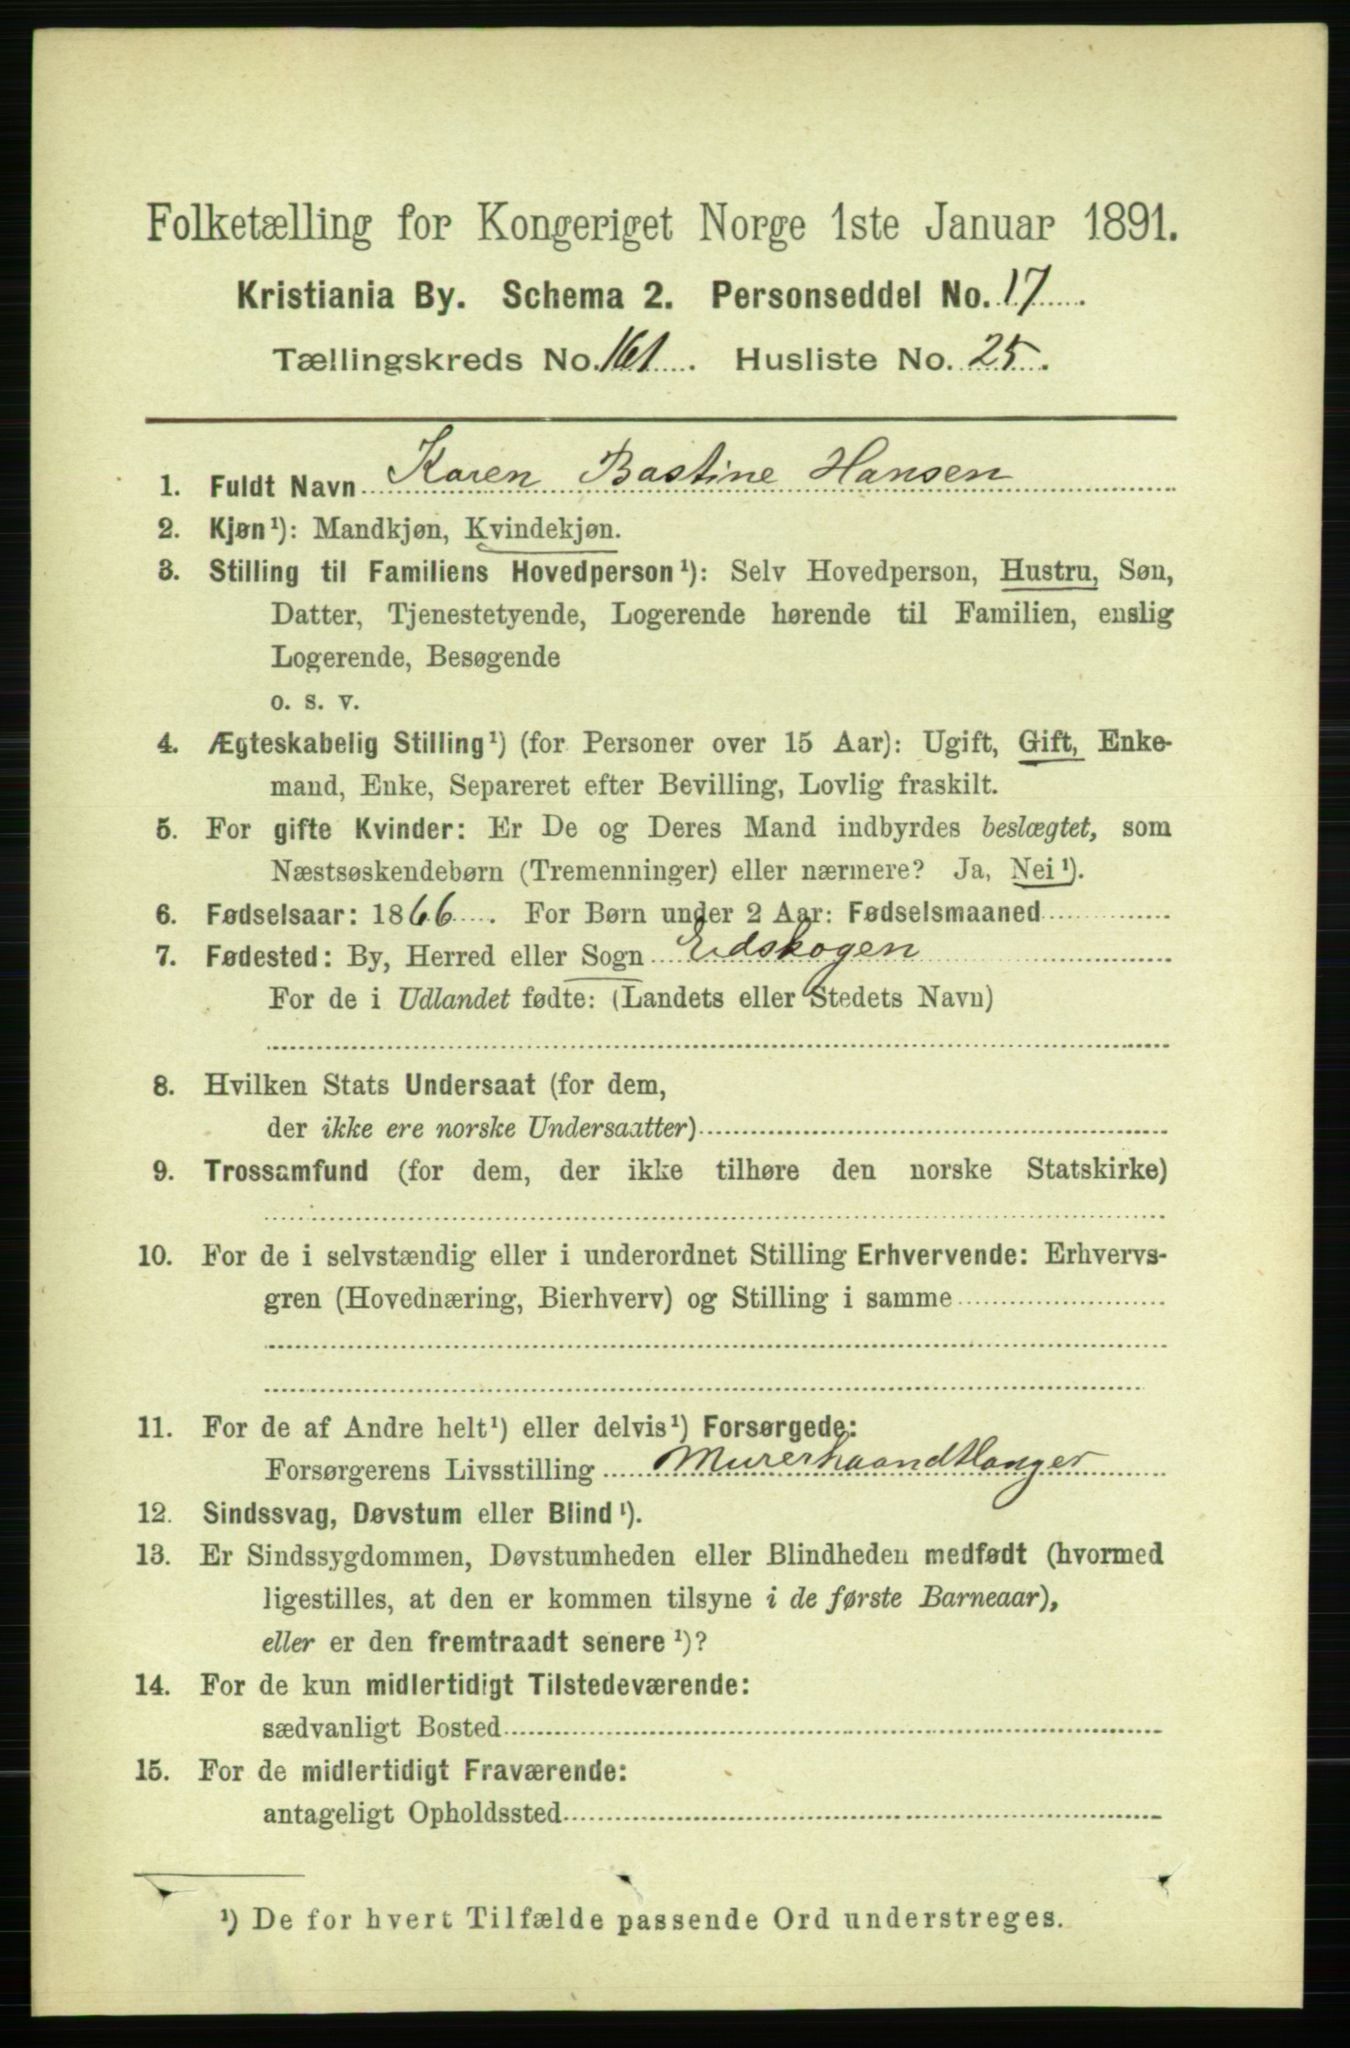 Folketælling for Kongeriget Norge 1ste Januar 1891.
Kristiania By. Schema 2. Personseddel No. 17
Tællingskreds No. 161. Husliste No. 25.
1. Fuldt Navn Karen Bastine Hansen
2. Kjøn¹): Mandkjøn, Kvindekjøn.
3. Stilling til Familiens Hovedperson¹): Selv Hovedperson, Hustru, Søn,
Datter, Tjenestetyende, Logerende hørende til Familien, enslig
Logerende, Besøgende
o. s. v.
4. Ægteskabelig Stilling¹) (for Personer over 15 Aar): Ugift, Gift, Enke-
mand, Enke, Separeret efter Bevilling, Lovlig fraskilt.
5. For gifte Kvinder: Er De og Deres Mand indbyrdes beslægtet, som
Næstsøskendebørn (Tremenninger) eller nærmere? Ja, Nei¹).
6. Fødselsaar: 1866. For Børn under 2 Aar: Fødselsmaaned
7. Fødested: By, Herred eller Sogn Eidskogen
For de i Udlandet fødte: (Landets eller Stedets Navn)
8. Hvilken Stats Undersaat (for dem,
der ikke ere norske Undersaatter)
9. Trossamfund (for dem, der ikke tilhøre den norske Statskirke)
10. For de i selvstændig eller i underordnet Stilling Erhvervende: Erhvervs-
gren (Hovednæring, Bierhverv) og Stilling i samme
11. For de af Andre helt¹) eller delvis¹) Forsørgede:
Forsørgerens Livsstilling Murerhaandtlanger
12. Sindssvag, Døvstum eller Blind¹).
13. Er Sindssygdommen, Døvstumheden eller Blindheden medfødt (hvormed
ligestilles, at den er kommen tilsyne i de første Barneaar),
eller er den fremtraadt senere¹)?
14. For de kun midlertidigt Tilstedeværende:
sædvanligt Bosted
15. For de midlertidigt Fraværende:
antageligt Opholdssted
¹) De for hvert Tilfælde passende Ord understreges.